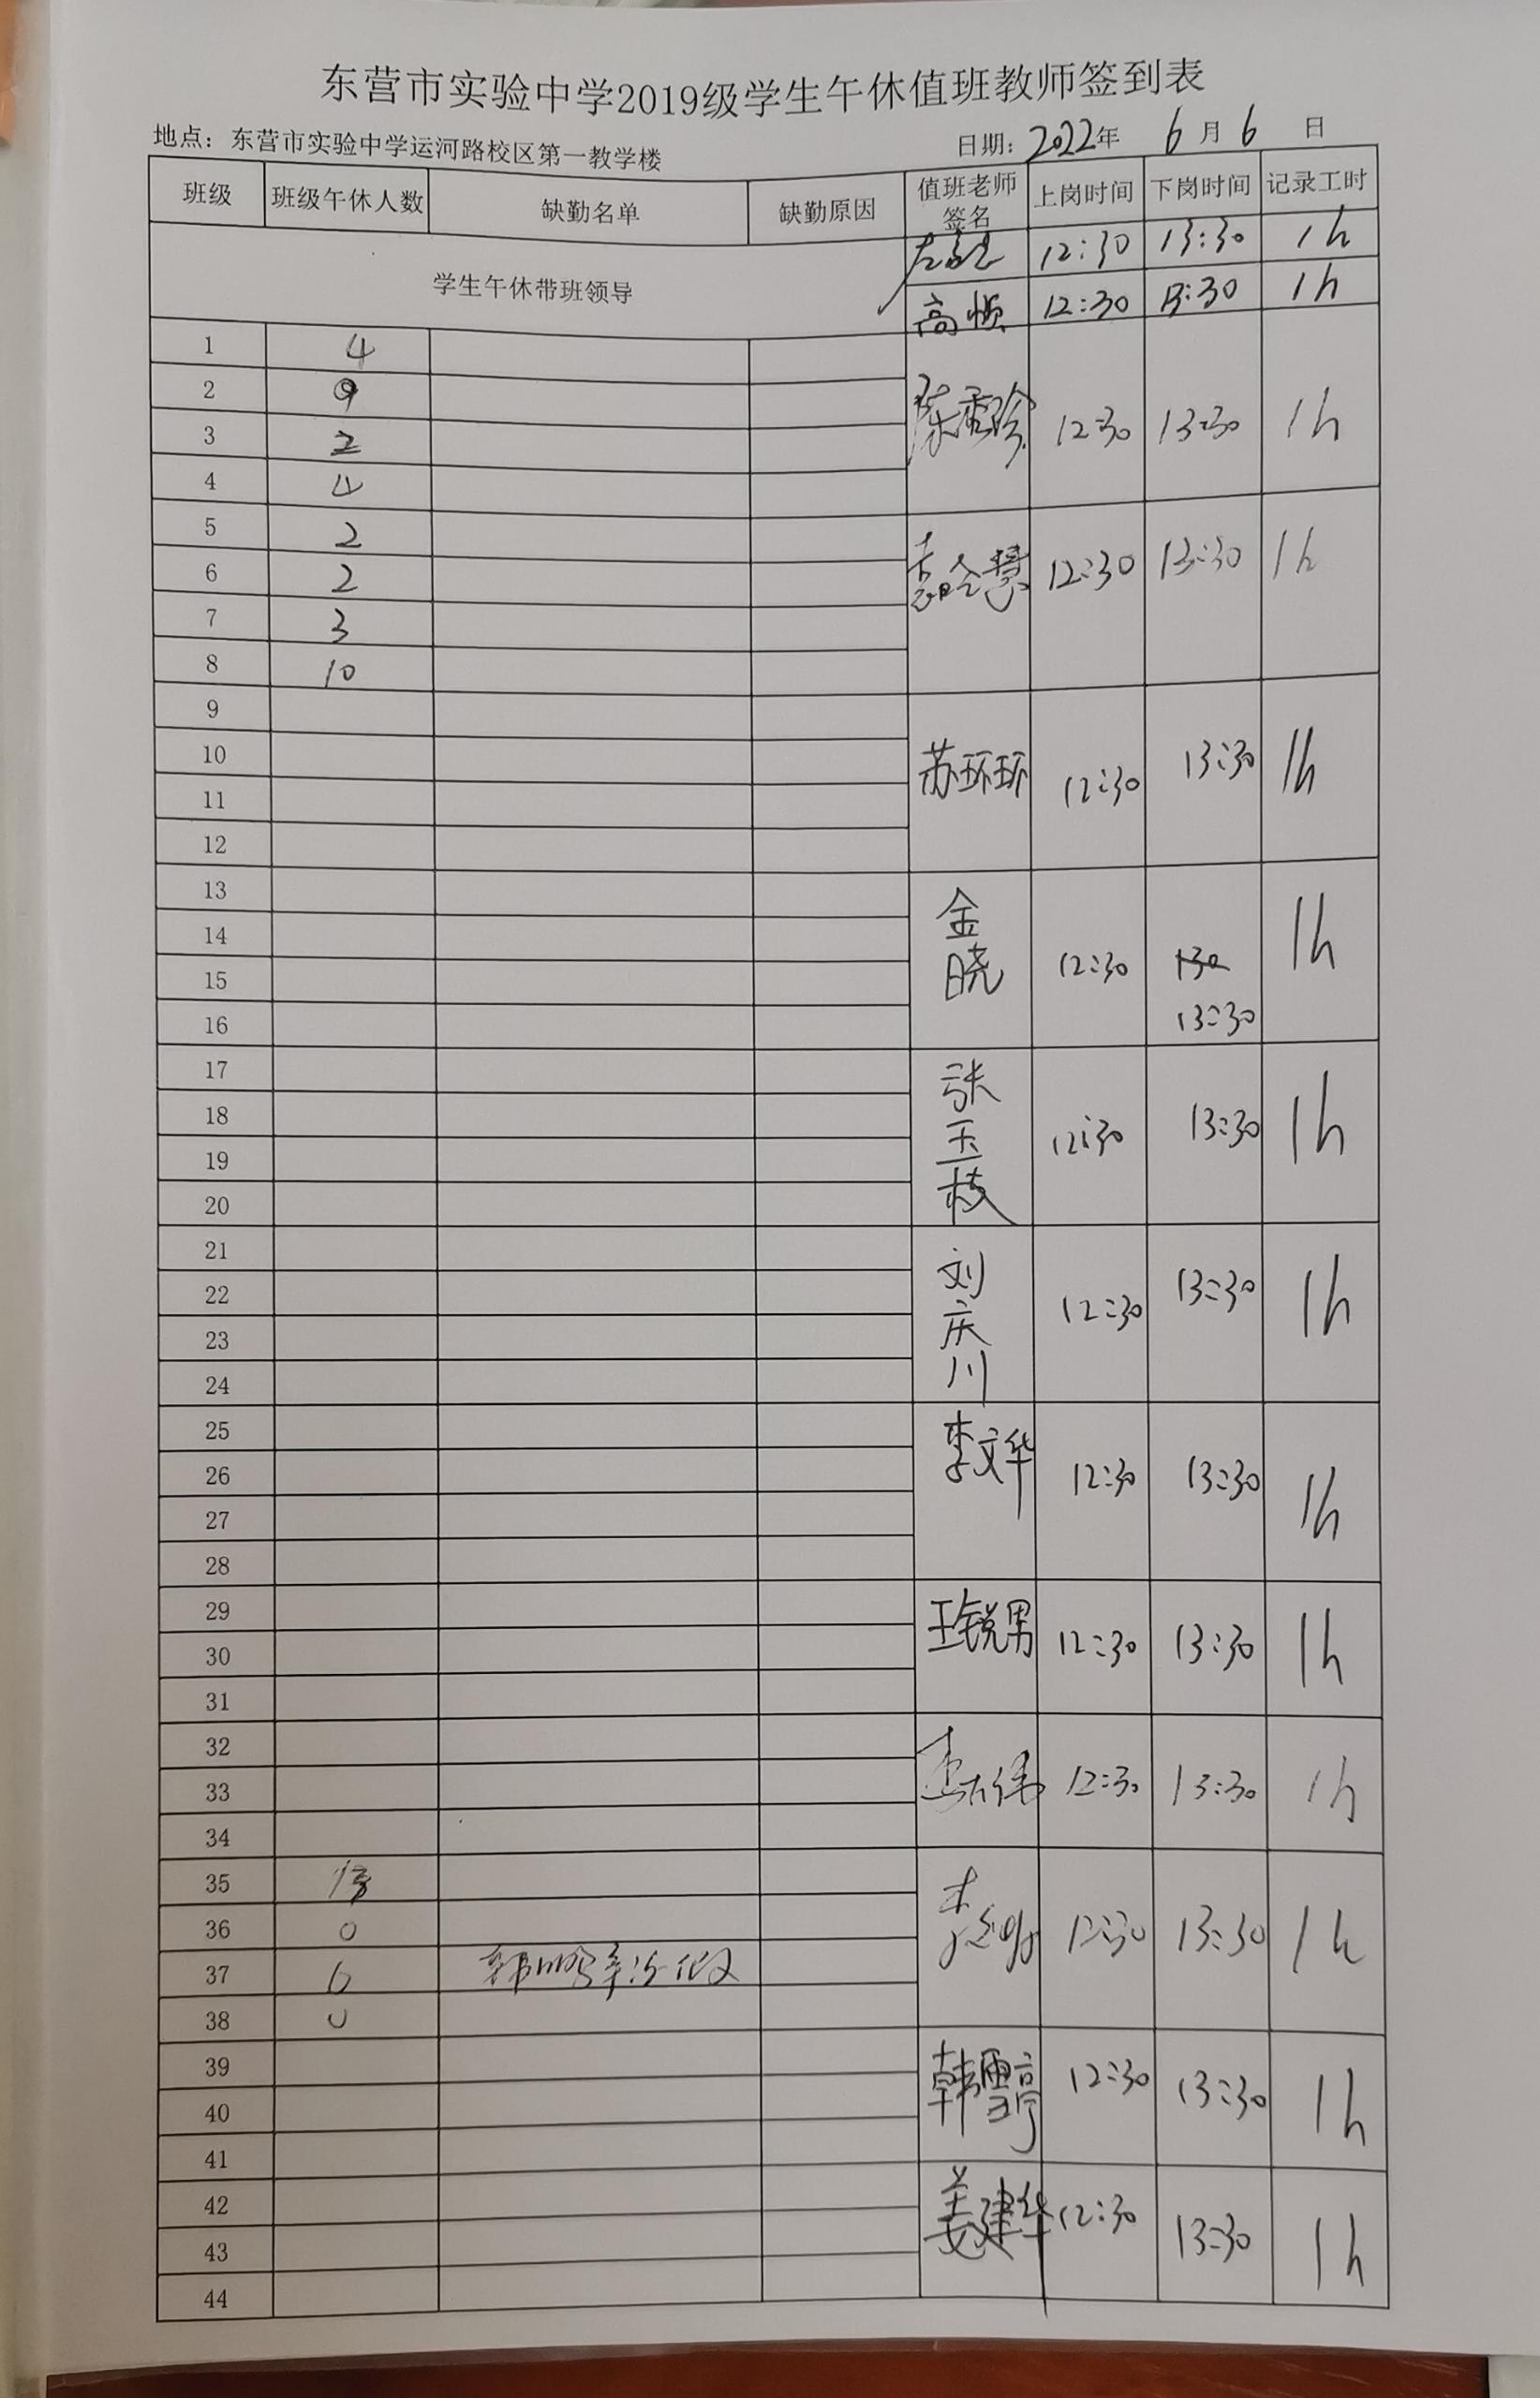 东营市实验中学2019级学生午休值班教师签到表
地点：东营市实验中学运河路校区第一教学楼 日期：2022年 6月6日
班级 班级午休人数 缺勤名单 缺勤原因 值班老师签名 上岗时间 下岗时间 记录工时
学生午休带班领导
12:30 13:30 1h
高 12:30 13:30 1h
1 4
2 9
3 2
4 4
陈 12:30 13:30 1h
5 2
6 2
7 3
8 10
12:30 13:30 1h
9
10
11
12
苏环环 12:30 13:30 1h
13
14
15
16
金晓 12:30 13:30 1h
17
18
19
20
张玉枝 12:30 13:30 1h
21
22
23
24
刘庆川 12:30 13:30 1h
25
26
27
28
李文华 12:30 13:30 1h
29
30
31
王锐男 12:30 13:30 1h
32
33
34
12:30 13:30 1h
35
36 0
37 6
38 0
李 12:30 13:30 1h
39
40
41
韩雪亭 12:30 13:30 1h
42
43
44
姜建华 12:30 13:30 1h